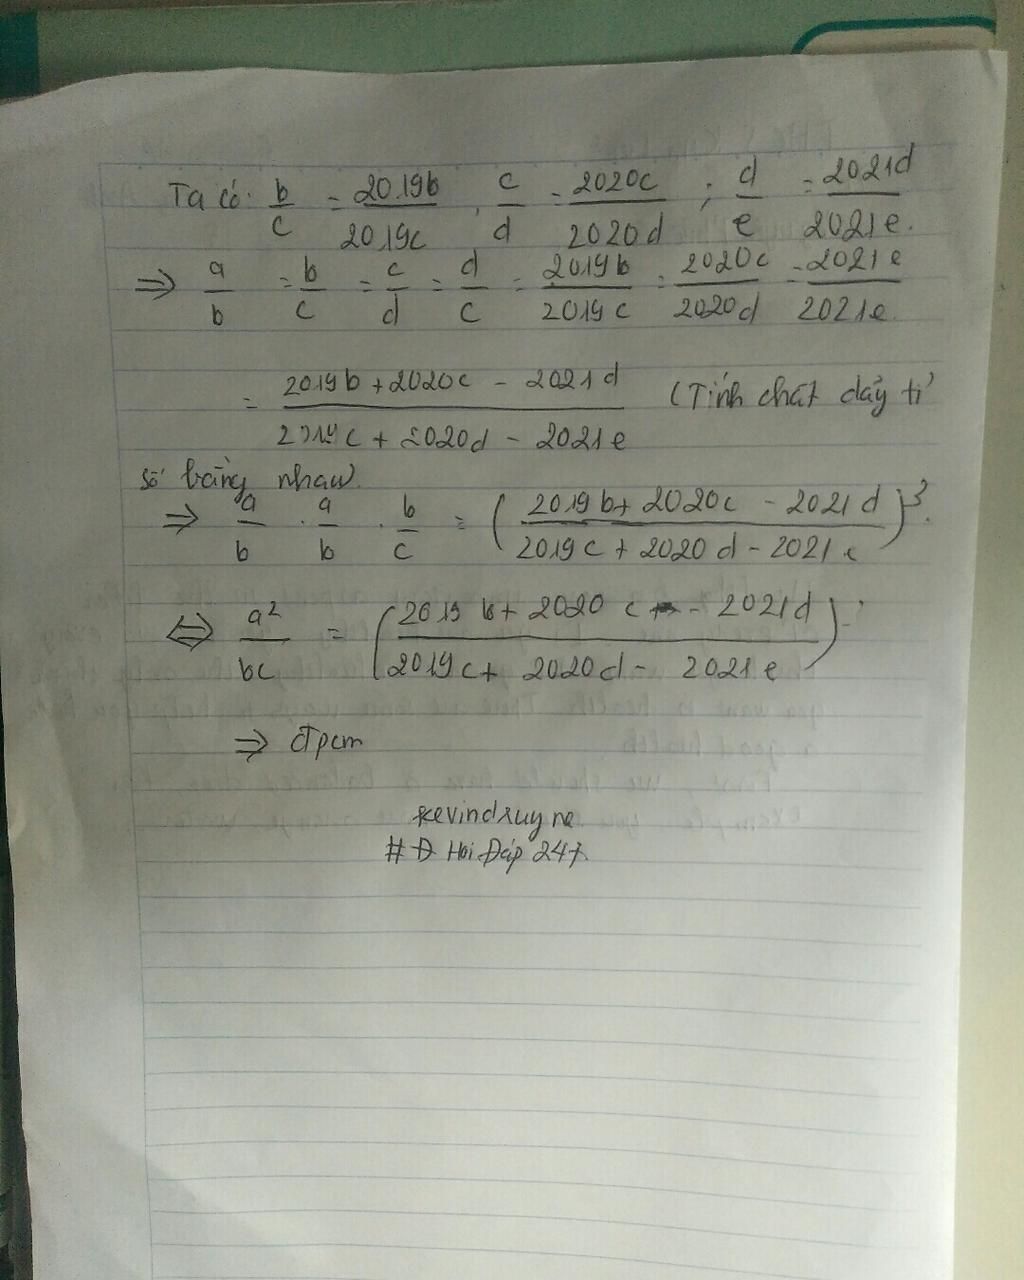 Ta có: b/c = 2019b/2019c . c/d = 2020c/2020d ; d/e = 2021d/2021e.
⇒ a/b = b/c = c/d = d/c = 2019b/2019c = 2020c/2020d = 2021e/2021e
= (2019b + 2020c - 2021d)/(2019c + 2020d - 2021e) (Tính chất dảy tỉ
số bằng nhau)
⇒ a/b . a/b . b/c = ((2019b + 2020c - 2021d)/(2019c + 2020d - 2021e))³.
⇔ a²/bc = ((2019b + 2020c - 2021d)/(2019c + 2020d - 2021e))
⇒ đpcm
kevinduy ne
#Đ Hỏi Đáp 247.